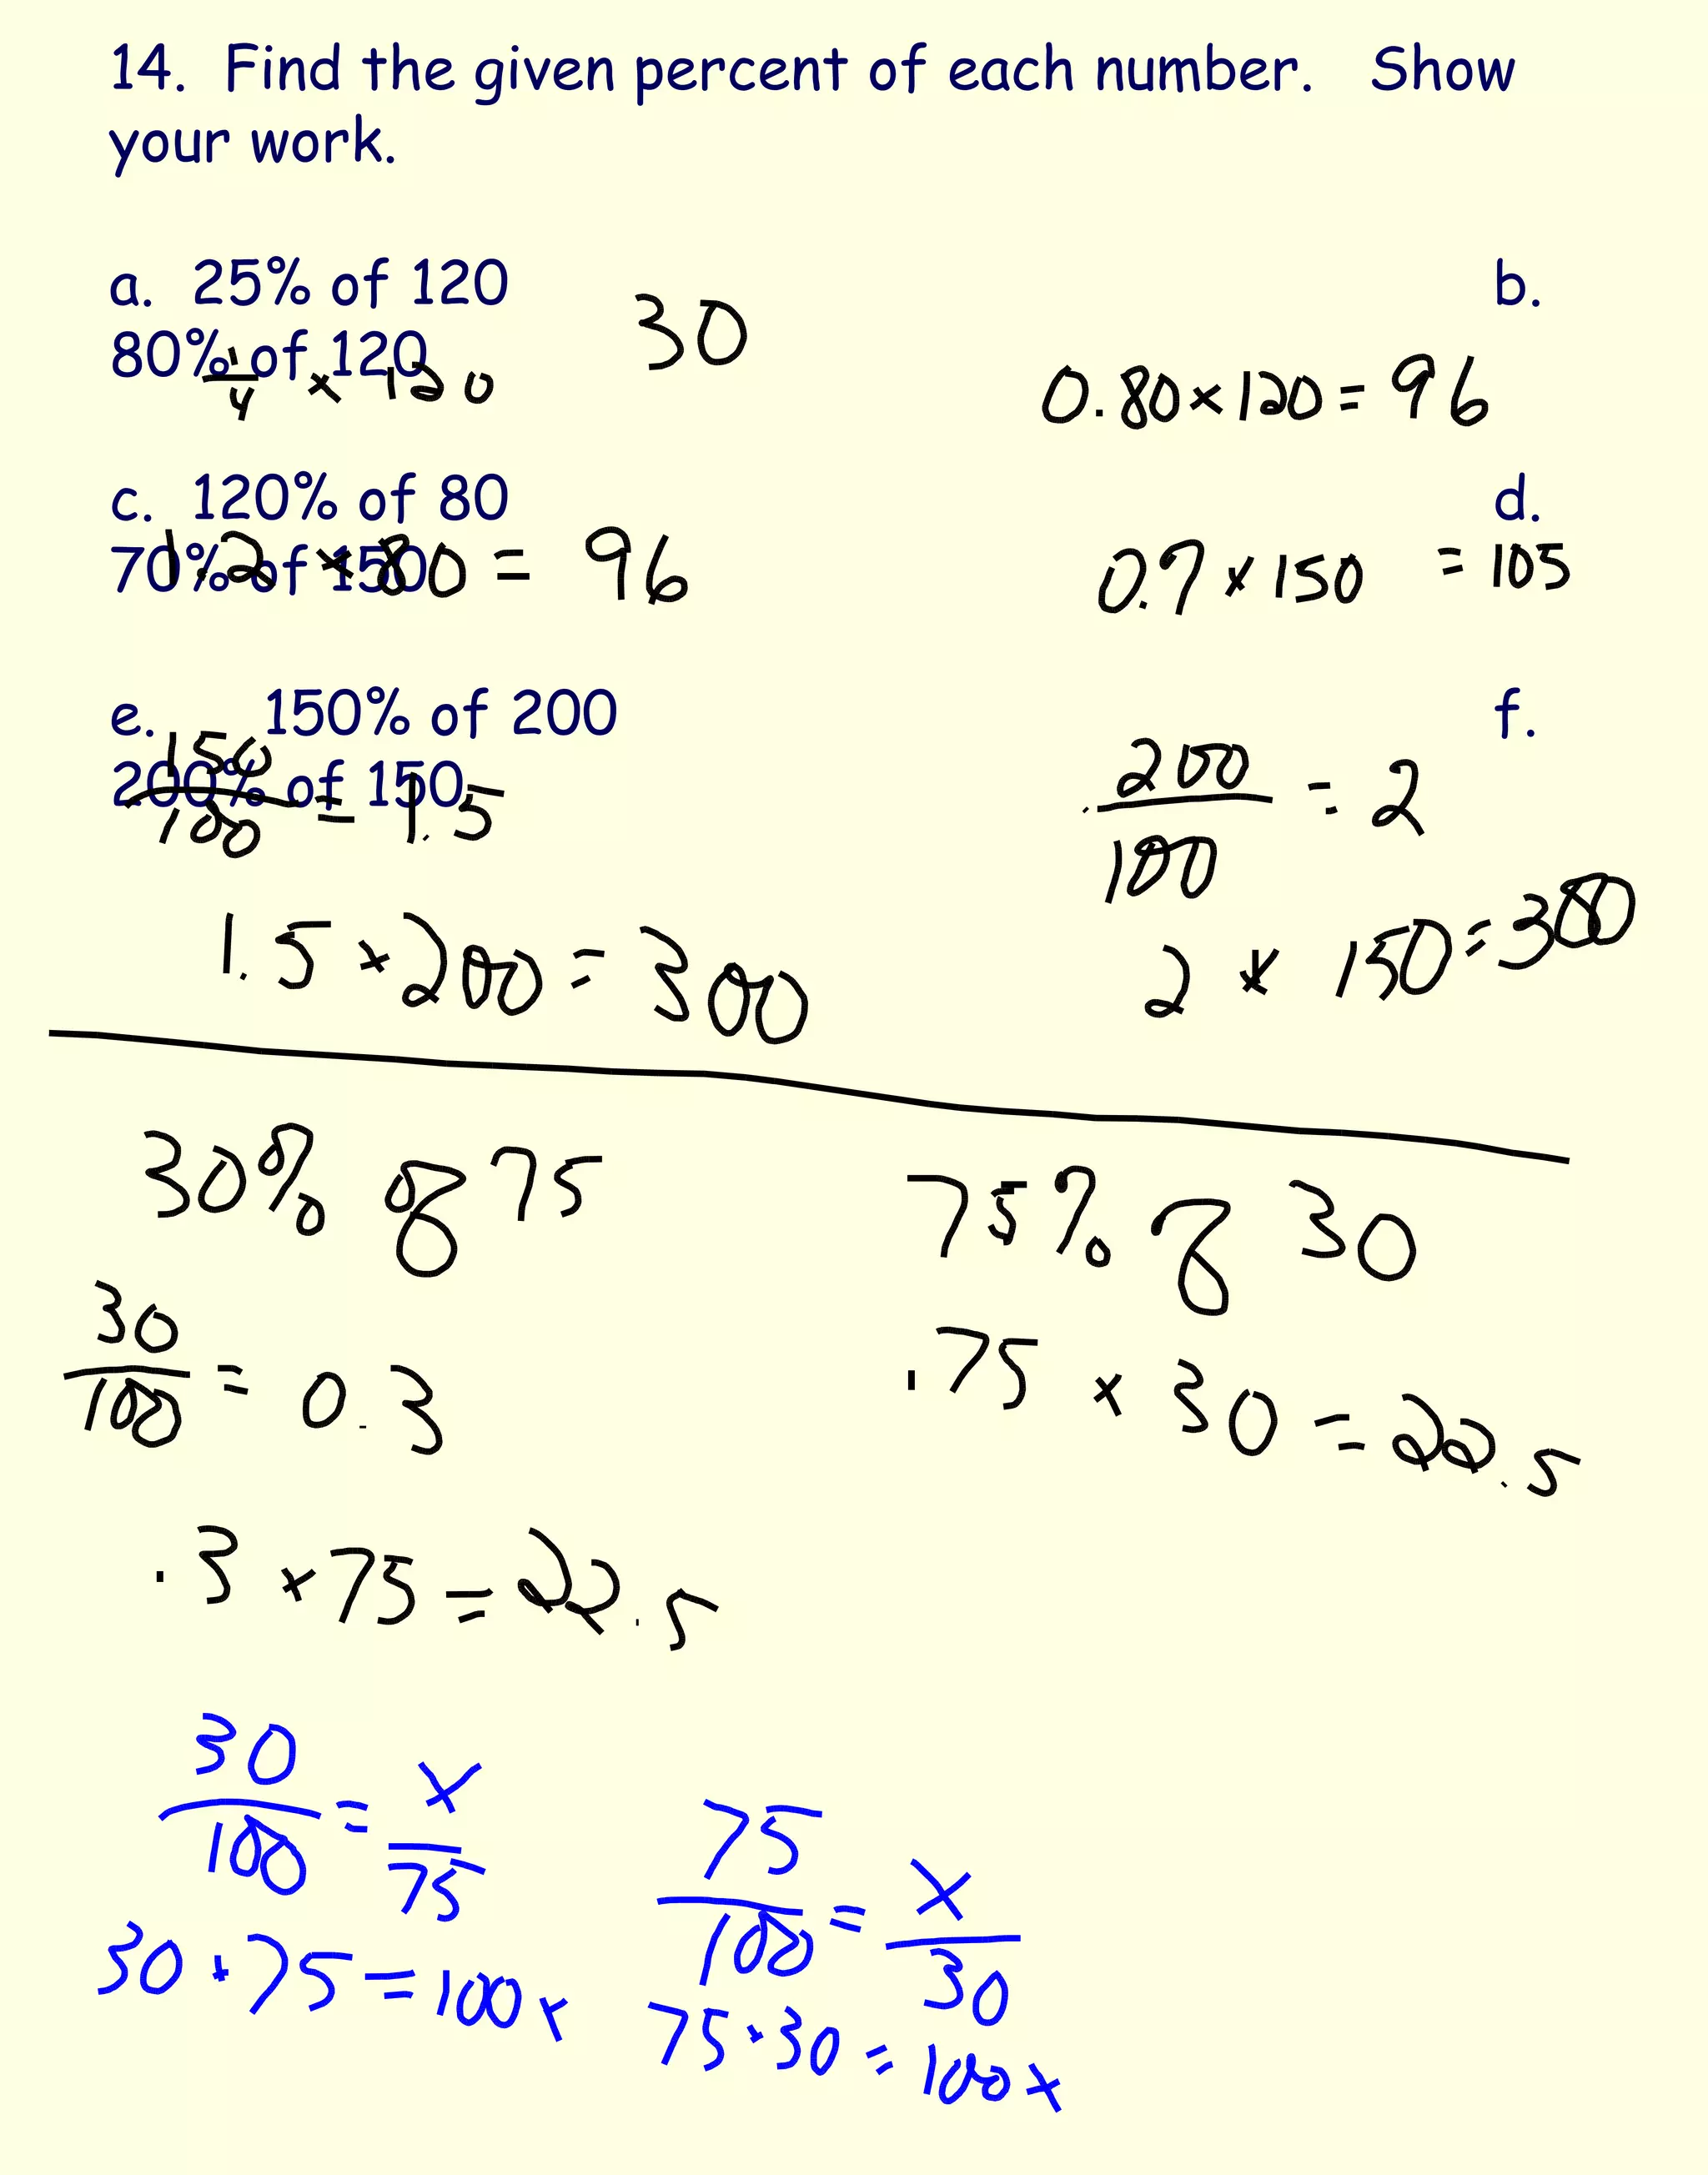 14. Find the given percent of each number. Show
your work.
a. 25% of 120 b.
80% of 120
30
1/4 × 120
0.80 × 120 = 96
c. 120% of 80 d.
70% of 150
1.2 × 80 = 96
0.7 × 150 = 105
e. 150% of 200 f.
200% of 150
150/100 = 1.5
200/100 = 2
1.5 × 200 = 300
2 × 150 = 300
30% of 75
75% of 30
30/100 = 0.3
.75 × 30 = 22.5
.3 × 75 = 22.5
30/100 = x/75
75/100 = x/30
30 · 75 = 100x
75 · 30 = 100x